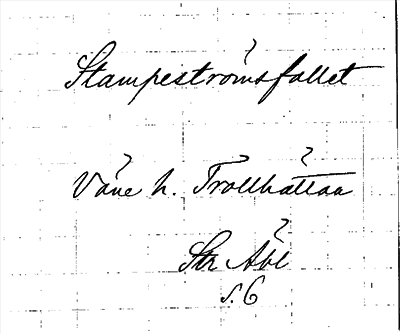 Stampeströmsfallet
Väne h. Trollhättan
Str Äbl
s. 6